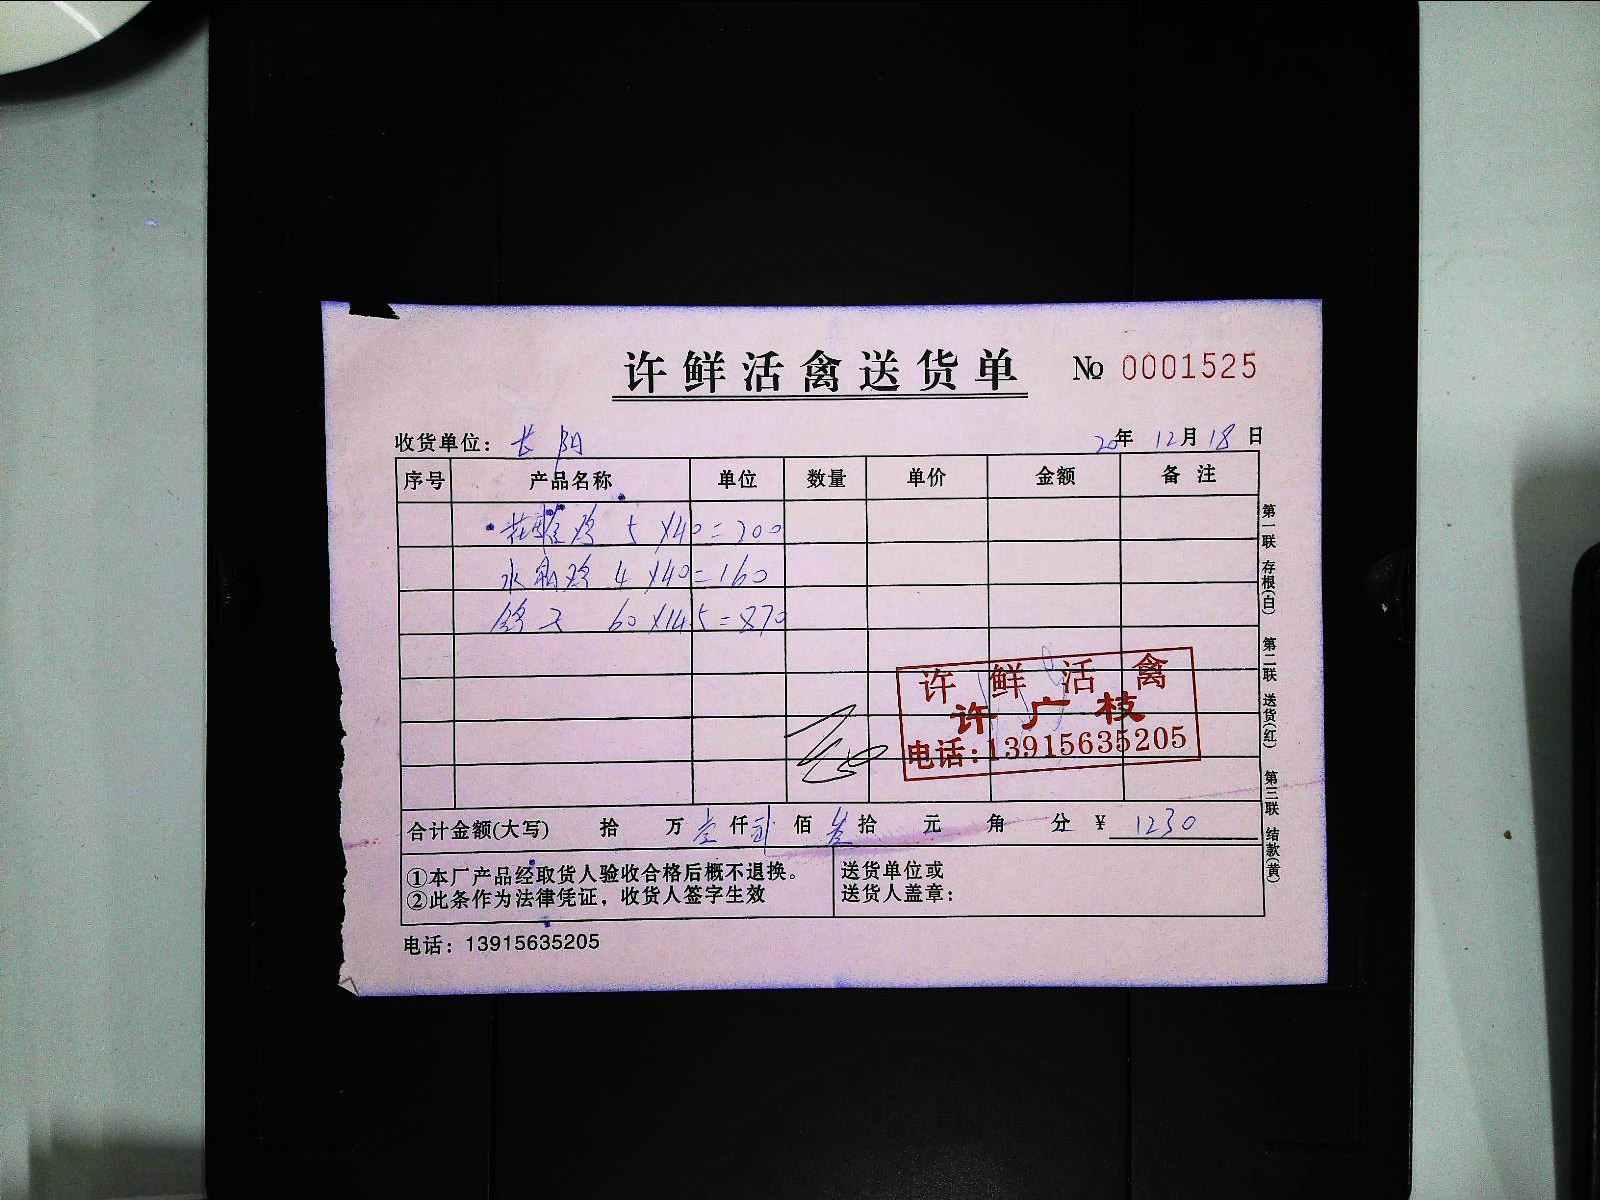 许鲜活禽送货单 № 0001525
收货单位： 长阳 20年 12月 18日
序号 产品名称 单位 数量 单价 金额 备注
花 鸡 5 ×40=200
水 鸡 4 ×40=160
60×14.5=870
许鲜活禽
许广枝
电话:13915635205
合计金额(大写) 拾 万 壹仟 贰佰 叁拾 元 角 分 ¥ 1230
①本厂产品经取货人验收合格后概不退换。
②此条作为法律凭证，收货人签字生效
送货单位或
送货人盖章：
电话：13915635205
第一联 存根(白)
第二联 送货(红)
第三联 结款(黄)